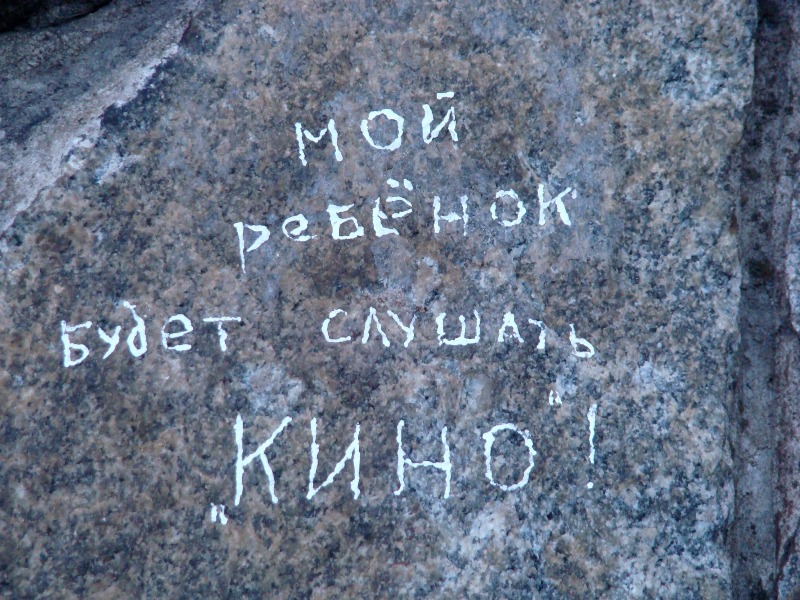 мой
ребёнок
будет слушать
„КИНО“!